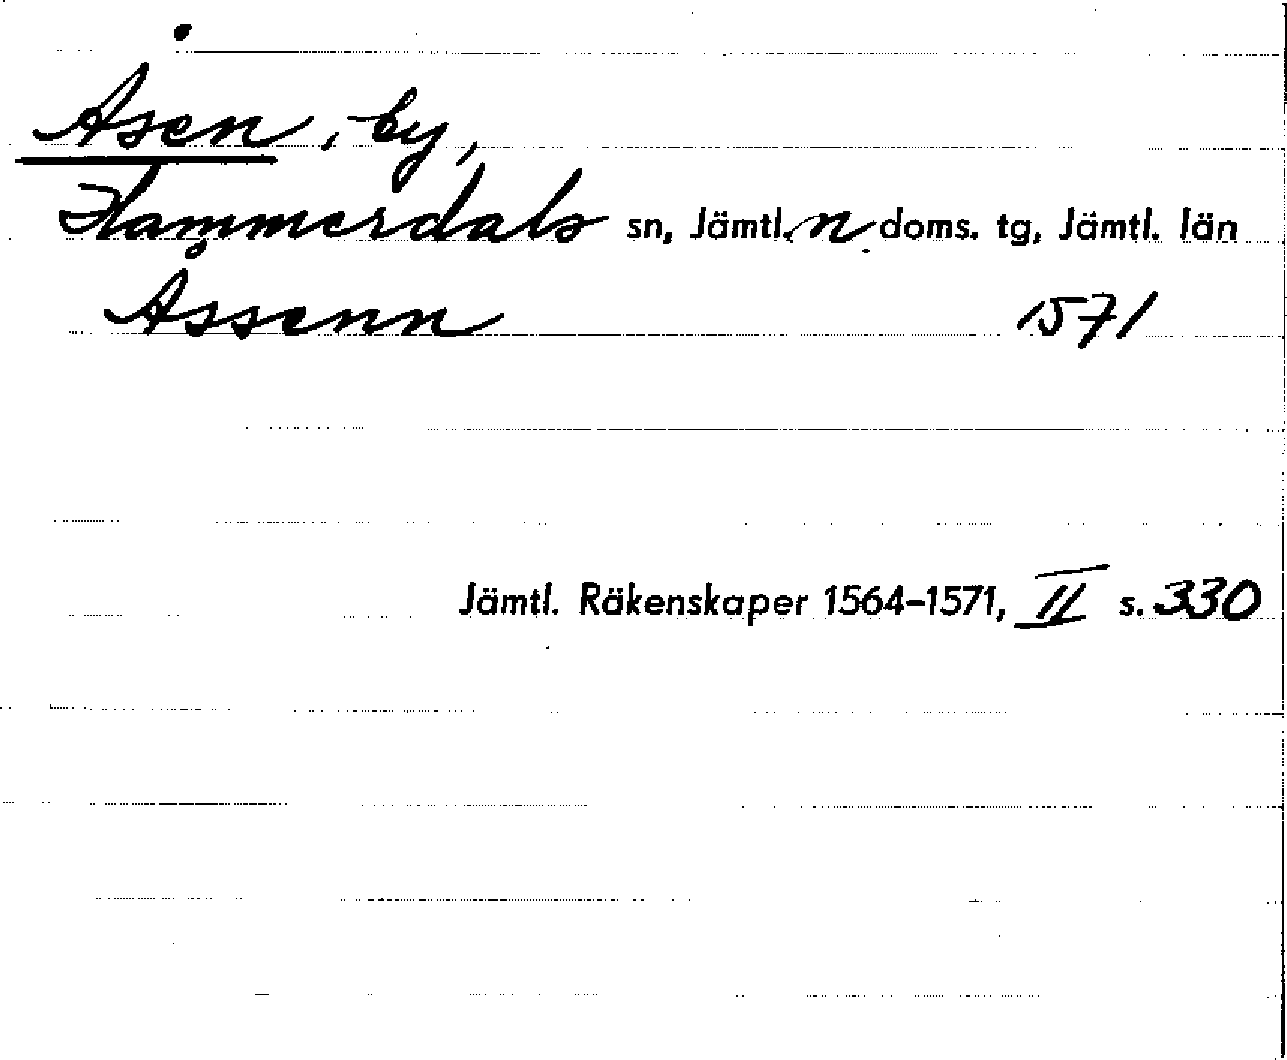 Åsen, by,
Hammerdals sn, Jämtl. n doms. tg, Jämtl. län
Åssenn 1571
Jämtl. Räkenskaper 1564-1571, II s. 330